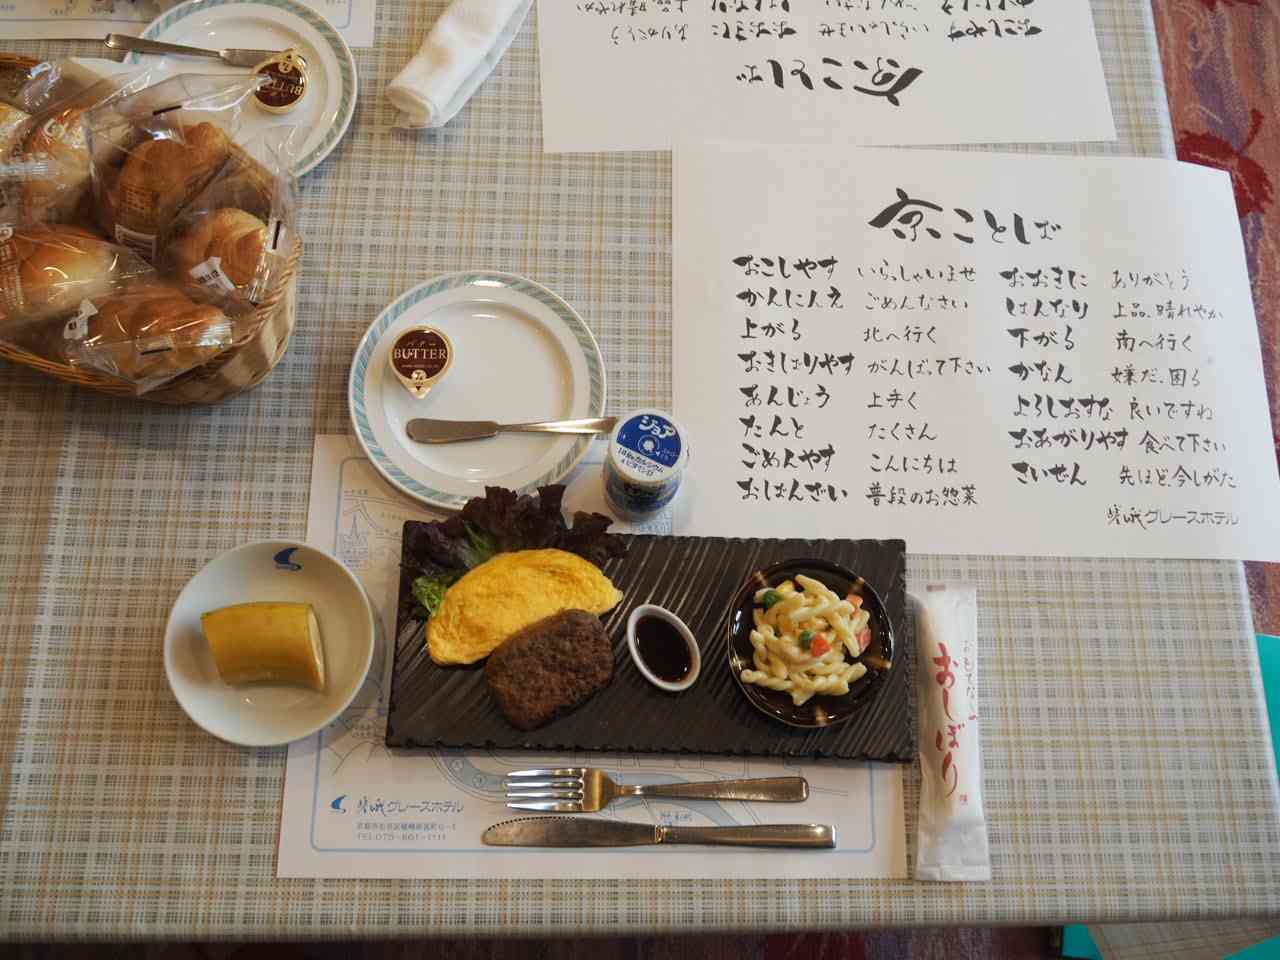 京ことば
おこしやす いらっしゃいませ
かんにんえ ごめんなさい
上がる 北へ行く
おきばりやす がんばって下さい
あんじょう 上手く
たんと たくさん
ごめんやす こんにちは
おばんざい 普段のお惣菜
おおきに ありがとう
はんなり 上品、晴れやか
下がる 南へ行く
かなん 嫌だ、困る
よろしおすな 良いですね
おあがりやす 食べて下さい
さいぜん 先ほど、今しがた
嵯峨グレースホテル
バター
BUTTER
ジョア
おしぼり
嵯峨グレースホテル